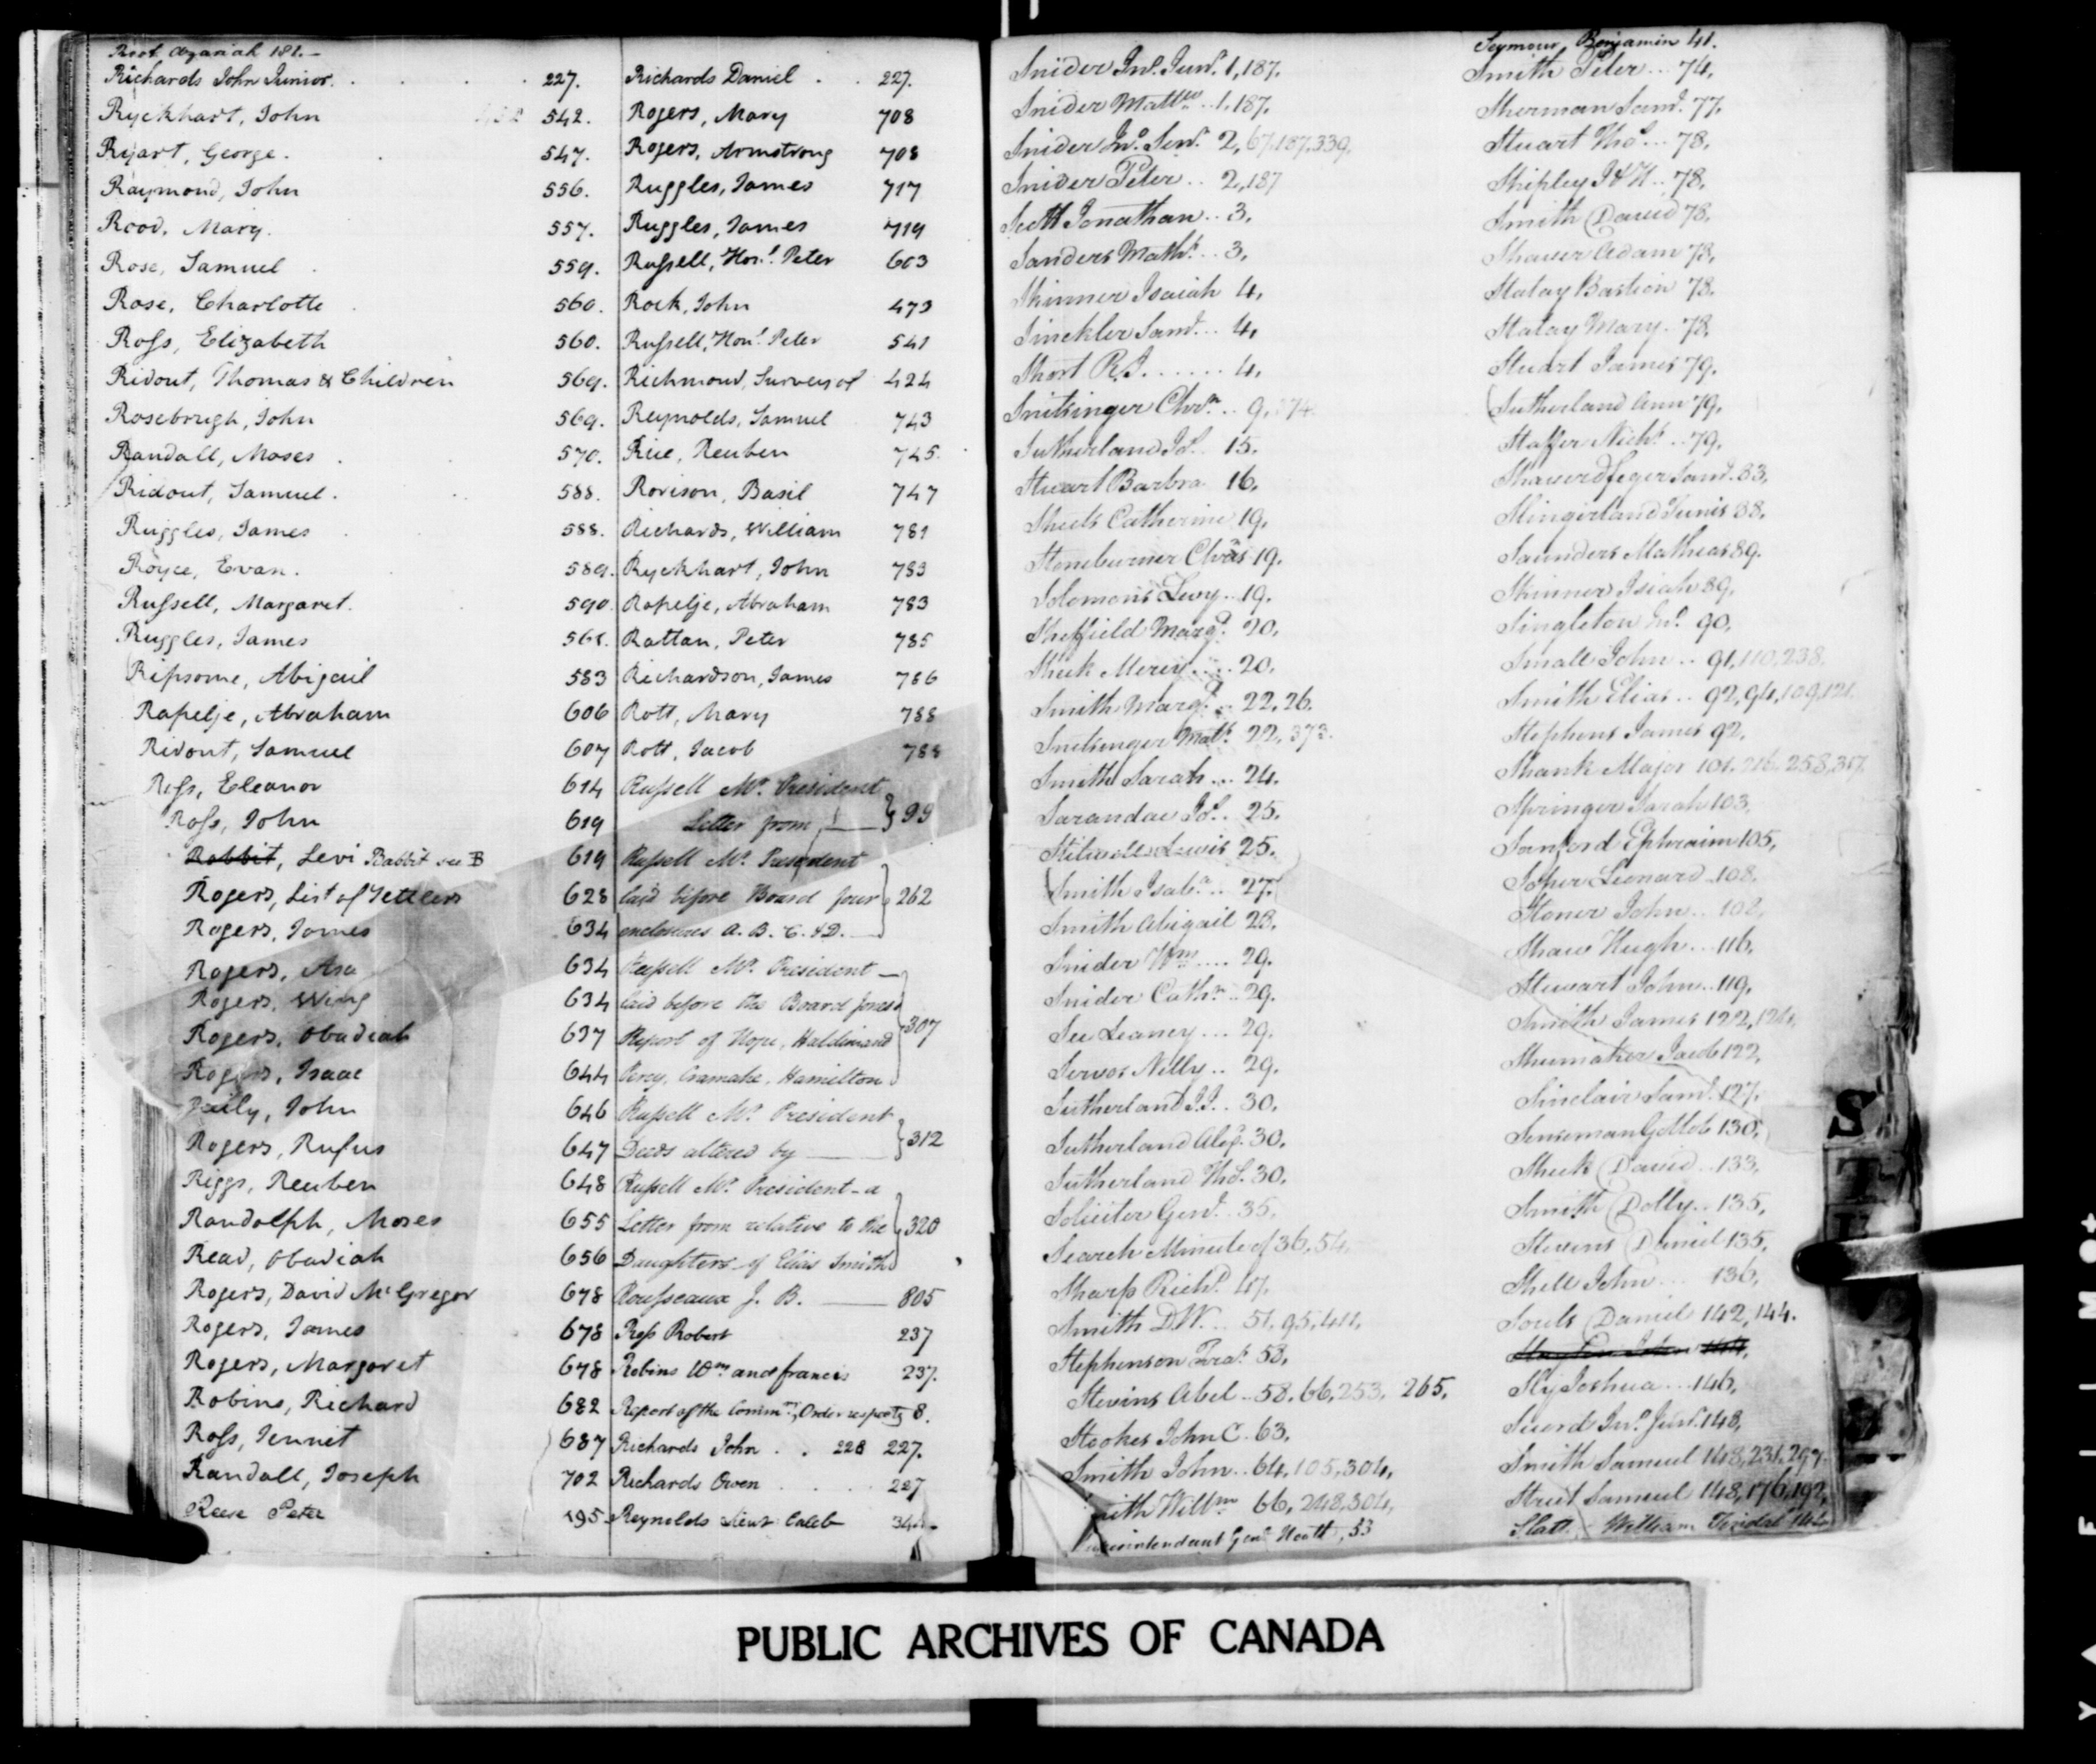 Root Azariah 181.—
Richards John Junior. 227.
Ryckhart, John 542.
Ryart, George. 547.
Raymond, John 556.
Rood, Mary. 557.
Rose, Samuel 559.
Rose, Charlotte 560.
Ross, Elizabeth 560.
Ridout, Thomas & Children 569.
Rosebrugh, John 569.
Randall, Moses 570.
Ridout, Samuel. 588.
Ruggles, James 588.
Royce, Evan. 589.
Russell, Margaret. 590
Ruggles, James
Ripsome, Abigail 583
Rapelje, Abraham 606
Ridout, Samuel 607
Ross, Eleanor 614
Ross, John 619
Rabbit, Levi Babbit see B 619
Rogers, List of Settlers 628
Rogers, James 634
Rogers, Asa 634
Rogers, Wing 634
Rogers, Obadiah 637
Rogers, Isaac 644
John 646
Rogers, Rufus 647
Riggs, Reuben 648
Randolph, Moses 655
Read, Obadiah 656
Rogers, David McGregor 678
Rogers, James 678
Rogers, Margaret 678
Robins, Richard 682
Ross, Jennet 687
Randall, Joseph 702
Reese Peter 195
Richards Daniel 227.
Rogers, Mary 708
Rogers, Armstrong 708
Ruggles, James 717
Ruggles, James 719
Russell, Honl. Peter 603
Rock, John 473
Russell, Honl. Peter 541
Richmond, Survey of 424
Reynolds, Samuel 743
Rice, Reuben 745
Rorison, Basil 747
Richards, William 781
Ryckhart, John 783
Rapelje, Abraham 783
Rattan, Peter 785
Richardson, James 786
Rott, Mary 788
Rott, Jacob 788
Russell Mr. President
Letter from 99
Russell Mr. President
laid before Board four 262
enclosures A. B. C. & D.
Russell Mr. President —
laid before the Board
Report of Hope, Haldimand 307
Percy, Cramahe, Hamilton
Russell Mr. President
Deeds altered by 312
Russell Mr. President - a
Letter from relative to the 320
Daughters of Elias Smith
Rousseaux J. B. 805
Ross Robert 237
Robins Wm and francis 237.
Report of the Commee, Order respectg 8.
Richards John . . 228 227.
Richards Owen 227
Reynolds Lieut Caleb
Snider Jno. Junr. 1, 187.
Snider Mattw .. 1, 187.
Snider Jno. Senr. 2, 67, 187, 339.
Snider Peter .. 2, 187
Scott Jonathan .. 3.
Sanders Maths. .. 3.
Skinner Isaiah 4.
Sinckler Saml. .. 4.
Short R.S. ...... 4.
Snitsinger Chrn. .. 9, 174
Sutherland Jos. 15.
Stuart Barbra 16.
Sheets Catherine 19.
Stoneburner Chras 19.
Solomons Levy .. 19.
Sheffield Margt. 20.
Sheek Mercy .... 20.
Smith Margt. .. 22, 26.
Snitsinger Matt. 22, 373.
Smith Sarah ... 24.
Sarandae Jos. 25.
Stilwell Lewis 25.
Smith Isaba. .. 27.
Smith Abigail 28.
Snider Wm .... 29.
Snider Cathn. .. 29.
See Leaney ... 29.
Servos Nelly .. 29.
Sutherland 30.
Sutherland Alexr. 30.
Sutherland Thos. 30.
Soliciter Genl. 35.
Search Minute of 36, 54.
Sharp Richd. 47.
Smith D.W. .. 51, 95, 411.
Stephenson Fras. 53.
Stevens Abel .. 58, 66, 253, 265.
Stookes John C. 63.
Smith John .. 64, 105, 304.
Smith Willm 66, 248, 304.
Superintendant Genl. North, 53
Seymour, Benjamin 41.
Smith Peter ... 74.
Sherman Saml. 77.
Stuart Thos. ... 78.
Shipley J & H .. 78.
Smith David 78.
Shaver Adam 78.
Statay Bastion 78.
Statay Mary. 78.
Stuart James 79.
Sutherland Ann 79.
Staffer Nichs. .. 79.
Saml. 83.
Slingerland Tunis 88.
Saunders Mathias 89.
Skinner Isiah 89.
Singleton Jno. 90.
Small John .. 91, 110, 238.
Smith Elias .. 92, 94, 109, 121.
Stephens James 92.
Shank Major 101, 216, 258, 317.
Springer Sarah 103.
Sanford Ephraim 105.
Soper Leonard 108.
Stoner John .. 108.
Shaw Hugh ... 116.
Stewart John .. 119.
Smith James 122, 124.
Shumaker Jacob 122.
Sinclair Saml. 127.
Senseman Gottlob 130.
Sheek David .. 133.
Smith Dolly .. 135.
Stevens Daniel 135.
Shell John ... 136.
Souls Daniel 142, 144.
Sly Joshua ... 146.
Suord Jno. Junr. 148.
Smith Samuel 148, 231, 297.
Street Samuel 148, 176, 192,
William
S
T
PUBLIC ARCHIVES OF CANADA